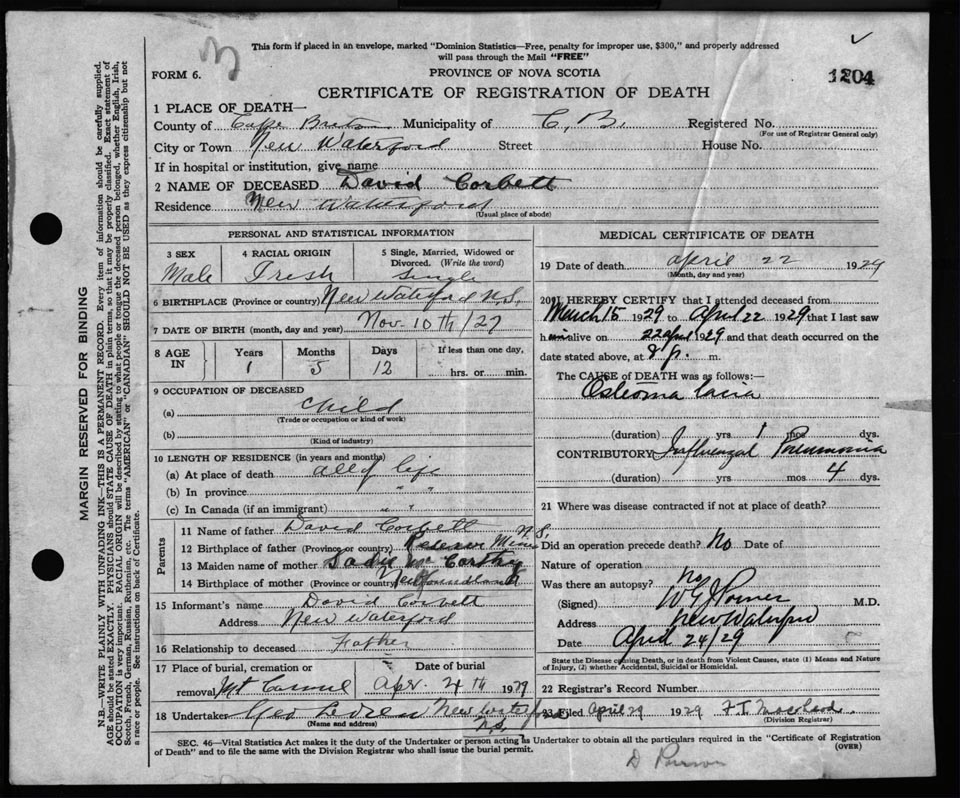 This form if placed in an envelope, marked "Dominion Statistics—Free, penalty for improper use, $300," and properly addressed
will pass through the Mail "FREE"
FORM 6.
PROVINCE OF NOVA SCOTIA
1204
CERTIFICATE OF REGISTRATION OF DEATH
1 PLACE OF DEATH—
County of Cape Breton Municipality of C. B. Registered No.
(For use of Registrar General only)
City or Town New Waterford Street House No.
If in hospital or institution, give name
2 NAME OF DECEASED David Corbett
Residence New Waterford
(Usual place of abode)
PERSONAL AND STATISTICAL INFORMATION
3 SEX Male
4 RACIAL ORIGIN Irish
5 Single, Married, Widowed or Divorced. (Write the word) Single
6 BIRTHPLACE (Province or country) New Waterford N.S.
7 DATE OF BIRTH (month, day and year) Nov. 10th/27
8 AGE IN Years 1 Months 5 Days 12 If less than one day, hrs. or min.
9 OCCUPATION OF DECEASED
(a) child
(Trade or occupation or kind of work)
(b)
(Kind of industry)
10 LENGTH OF RESIDENCE (in years and months)
(a) At place of death all of life
(b) In province " "
(c) In Canada (if an immigrant) " "
Parents
11 Name of father David Corbett
12 Birthplace of father (Province or country) Reserve Mines N.S.
13 Maiden name of mother Sadie McCarthy
14 Birthplace of mother (Province or country) Newfoundland
15 Informant's name David Corbett
Address New Waterford
16 Relationship to deceased Father
17 Place of burial, cremation or removal Mt Carmel
Date of burial Apr. 24th 1929
18 Undertaker Geo New Waterford N.S.
(Name and address)
MEDICAL CERTIFICATE OF DEATH
19 Date of death April 22 1929
(Month, day and year)
20 I HEREBY CERTIFY that I attended deceased from
March 15 1929 to April 22 1929 that I last saw
him alive on 22 April 1929 and that death occurred on the
date stated above, at 8 p. m.
The CAUSE of DEATH was as follows:—
Osteomalacia
(duration) yrs 1 mos dys.
CONTRIBUTORY Influenzal Pneumonia
(duration) yrs mos 4 dys.
21 Where was disease contracted if not at place of death?
Did an operation precede death? No Date of
Nature of operation
Was there an autopsy? No
(Signed) M.D.
Address New Waterford
Date April 24/29
State the Disease causing Death, or in death from Violent Causes, state (1) Means and Nature
of Injury, (2) whether Accidental, Suicidal or Homicidal.
22 Registrar's Record Number
23 Filed April 29 1929
(Division Registrar)
SEC. 46—Vital Statistics Act makes it the duty of the Undertaker or person acting as Undertaker to obtain all the particulars required in the "Certificate of Registration
of Death" and to file the same with the Division Registrar who shall issue the burial permit.
(OVER)
MARGIN RESERVED FOR BINDING
N.B.—WRITE PLAINLY WITH UNFADING INK—THIS IS A PERMANENT RECORD. Every item of information should be carefully supplied.
AGE should be stated EXACTLY. PHYSICIANS should STATE CAUSE OF DEATH in plain terms, so that it may be properly classified. Exact statement of
OCCUPATION is very important. RACIAL ORIGIN will be described by stating to what people or tongue the deceased person belonged, whether English, Irish,
Scotch, French, German, Russian, Ruthenian, etc. The terms "AMERICAN" or "CANADIAN" SHOULD NOT BE USED as they express citizenship but not
a race or people. See instructions on back of Certificate.